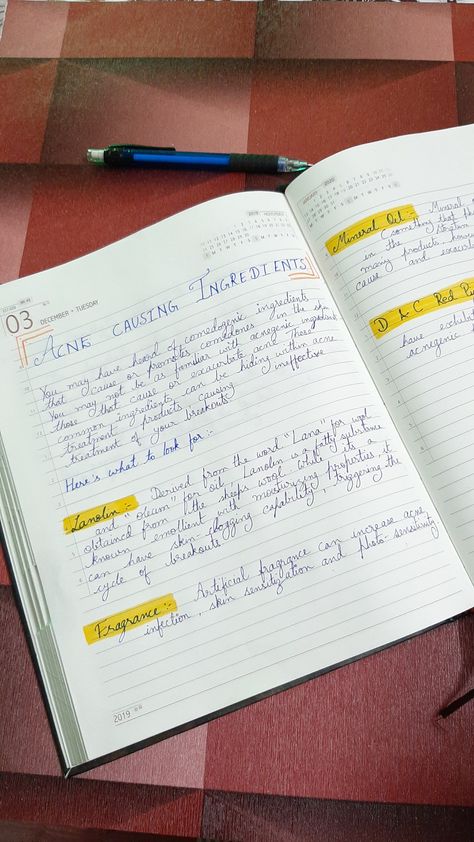 2019
NOVEMBER
03 DECEMBER • TUESDAY
ACNE CAUSING INGREDIENTS
You may have heard of comedogenic ingredients
that cause or promotes comedones in the skin.
You may not be as familiar with acnegenic ingredient
those that cause or exacerbate acne. These
common ingredients can be hiding within acne
treatment products causing ineffective
treatment of your breakouts.
Here's what to look for :-
Lanolin :- Derived from the word "Lana" for wool
and "oleum" for oil, Lanolin is a fatty substance
obtained from the sheeps wool. While its a
known emollient with moisturizing properties, it
can have skin-clogging capability, triggering the
cycle of breakouts.
Fragrance :- Artificial fragrance can increase acne
infection, skin sensitization and photo-sensitivity.
2019
2020
Mineral Oil :- Mineral
(something that
in the
many products, how
cause and exacer
D & C Red
have exhibit
acnegenic